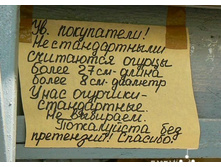 Ув. покупатели!
Нестандартными
считаются огурцы
более 27см-длина
более 8см-диаметр
У нас огурчики-
стандартные.
Не выбираем.
Пожалуйста без
претензий! Спасибо.